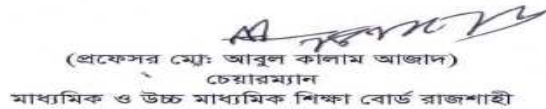 (প্রফেসর মোঃ আবুল কালাম আজাদ)
চেয়ারম্যান
মাধ্যমিক ও উচ্চ মাধ্যমিক শিক্ষা বোর্ড রাজশাহী